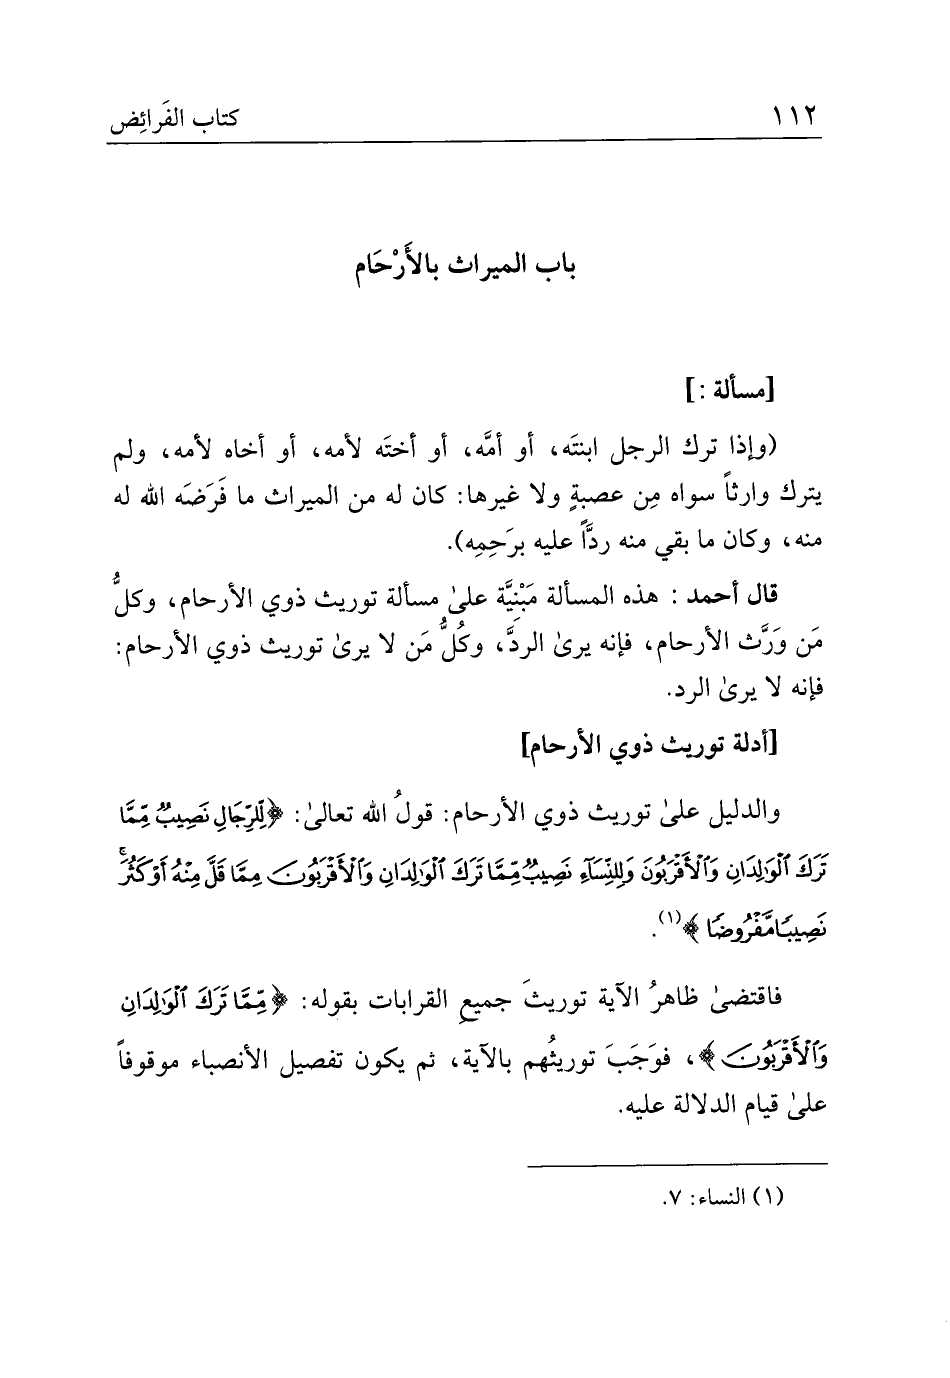 ١١٢ كتاب الفَرائِض
باب الميراث بالأَرْحَام
[مسألة :]
(وإذا ترك الرجل ابنتَه، أو أمَّه، أو أختَه لأمه، أو أخاه لأمه، ولم
يترك وارثاً سواه مِن عصبةٍ ولا غيرها: كان له من الميراث ما فَرَضَه الله له
منه، وكان ما بقي منه ردَّاً عليه برَحِمِه).
قال أحمد : هذه المسألة مَبْنِيَّة علىٰ مسألة توريث ذوي الأرحام، وكلُّ
مَن وَرَّث الأرحام، فإنه يرىٰ الردَّ، وكُلُّ مَن لا يرىٰ توريث ذوي الأرحام:
فإنه لا يرىٰ الرد.
[أدلة توريث ذوي الأرحام]
والدليل علىٰ توريث ذوي الأرحام: قولُ الله تعالىٰ: ﴿لِّلرِّجَالِ نَصِيبٌ مِّمَّا
تَرَكَ ٱلْوَٰلِدَانِ وَٱلْأَقْرَبُونَ وَلِلنِّسَآءِ نَصِيبٌ مِّمَّا تَرَكَ ٱلْوَٰلِدَانِ وَٱلْأَقْرَبُونَ مِمَّا قَلَّ مِنْهُ أَوْ كَثُرَ ۚ
نَصِيبًا مَّفْرُوضًا ﴾(١).
فاقتضىٰ ظاهرُ الآية توريثَ جميعِ القرابات بقوله: ﴿ مِّمَّا تَرَكَ ٱلْوَٰلِدَانِ
وَٱلْأَقْرَبُونَ ﴾، فوَجَبَ توريثُهم بالآية، ثم يكون تفصيل الأنصباء موقوفاً
علىٰ قيام الدلالة عليه.
(١) النساء: ٧.